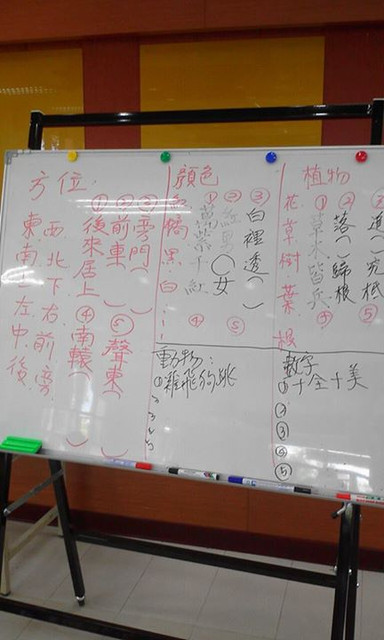 方位：
東南上左中後
西北下右前旁
①後來居上
②前車（ ）
③旁門（ ）
④南轅（ ）
⑤聲東（ ）
顏色
黑 白
①萬紫千紅
②紅男○女
③白裡透（ ）
④
⑤
植物
花草樹葉根
①草木皆兵
②落（ ）歸根
④
⑤
動物：
①雞飛狗跳
2
3
4
5
數字
①十全十美
②
③
④
⑤